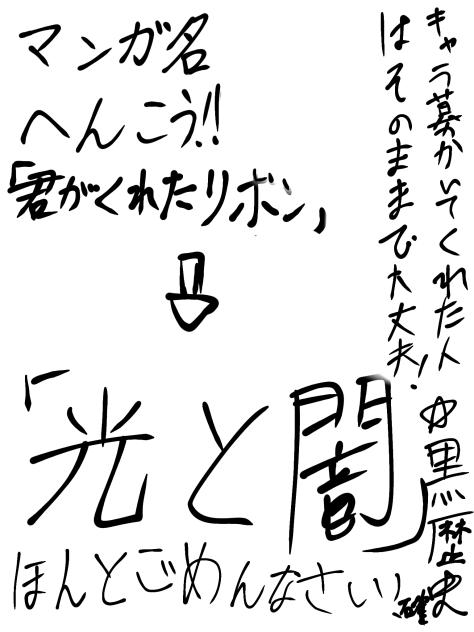 マンガ名
へんこう!!
「君がくれたリボン」
「光と闇」
ほんとごめんなさい!
キャラ募かいてくれた人
はそのままで大丈夫!
☆黒歴史
確